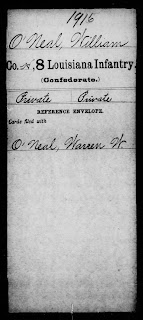 1916
O'Neal, William
Co. K, 8 Louisiana Infantry.
(Confederate.)
Private Private
REFERENCE ENVELOPE.
Cards filed with
O'Neal, Warren W